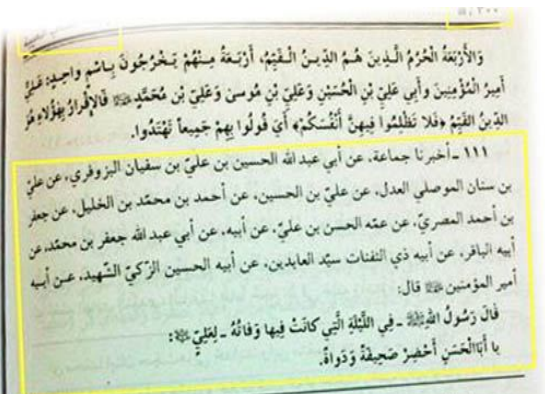 ٣٠٠
وَالأَرْبَعَةُ الْحُرُمُ الَّذِينَ هُمُ الدِّينُ الْقَيِّمُ، أَرْبَعَةٌ مِنْهُمْ يَخْرُجُونَ بِاسْمٍ وَاحِدٍ: عَلِيٌّ
أَمِيرُ الْمُؤْمِنِينَ وَأَبِي عَلِيُّ بْنُ الْحُسَيْنِ وَعَلِيُّ بْنُ مُوسَىٰ وَعَلِيُّ بْنُ مُحَمَّدٍ ﷺ فَالإِقْرَارُ بِهَؤُلاَءِ هُوَ
الدِّينُ القَيِّمُ ﴿فَلا تَظْلِمُوا فِيهِنَّ أَنْفُسَكُمْ﴾ أَيْ قُولُوا بِهِمْ جَمِيعاً تَهْتَدُوا.
١١١ ـ أخبرنا جماعة، عن أبي عبد الله الحسين بن عليّ بن سفيان البزوفري، عن عليّ
بن سنان الموصلي العدل، عن عليّ بن الحسين، عن أحمد بن محمّد بن الخليل، عن جعفر
بن أحمد المصريّ، عن عمّه الحسن بن عليّ، عن أبيه، عن أبي عبد الله جعفر بن محمّد، عن
أبيه الباقر، عن أبيه ذي الثفنات سيّد العابدين، عن أبيه الحسين الزّكيّ الشّهيد، عن أبيه
أمير المؤمنين قال:
قَالَ رَسُولُ اللهِ ﷺ ـ فِي اللَّيْلَةِ الَّتِي كَانَتْ فِيها وَفَاتُهُ ـ لِعَلِيٍّ :
يا أَبَاالْحَسَنِ أَحْضِرْ صَحِيفَةً وَدَواةً.